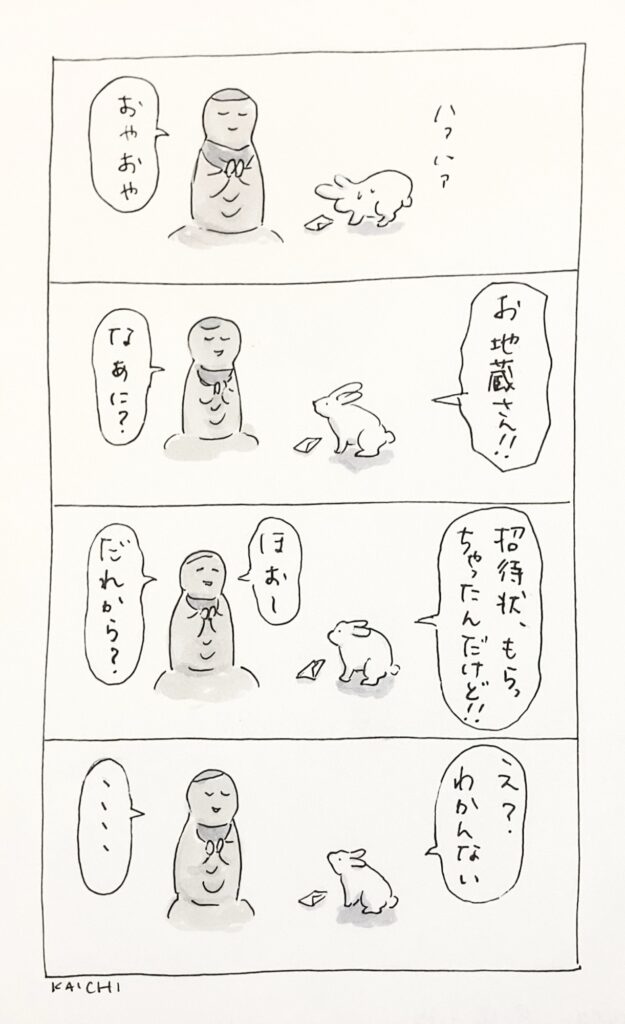 ハァハァ
おやおや
お地蔵さん!!
なぁに?
招待状、もらっ
ちゃったんだけど!!
ほぉー
だれから?
え?
わかんない
、、、、
KAICHI